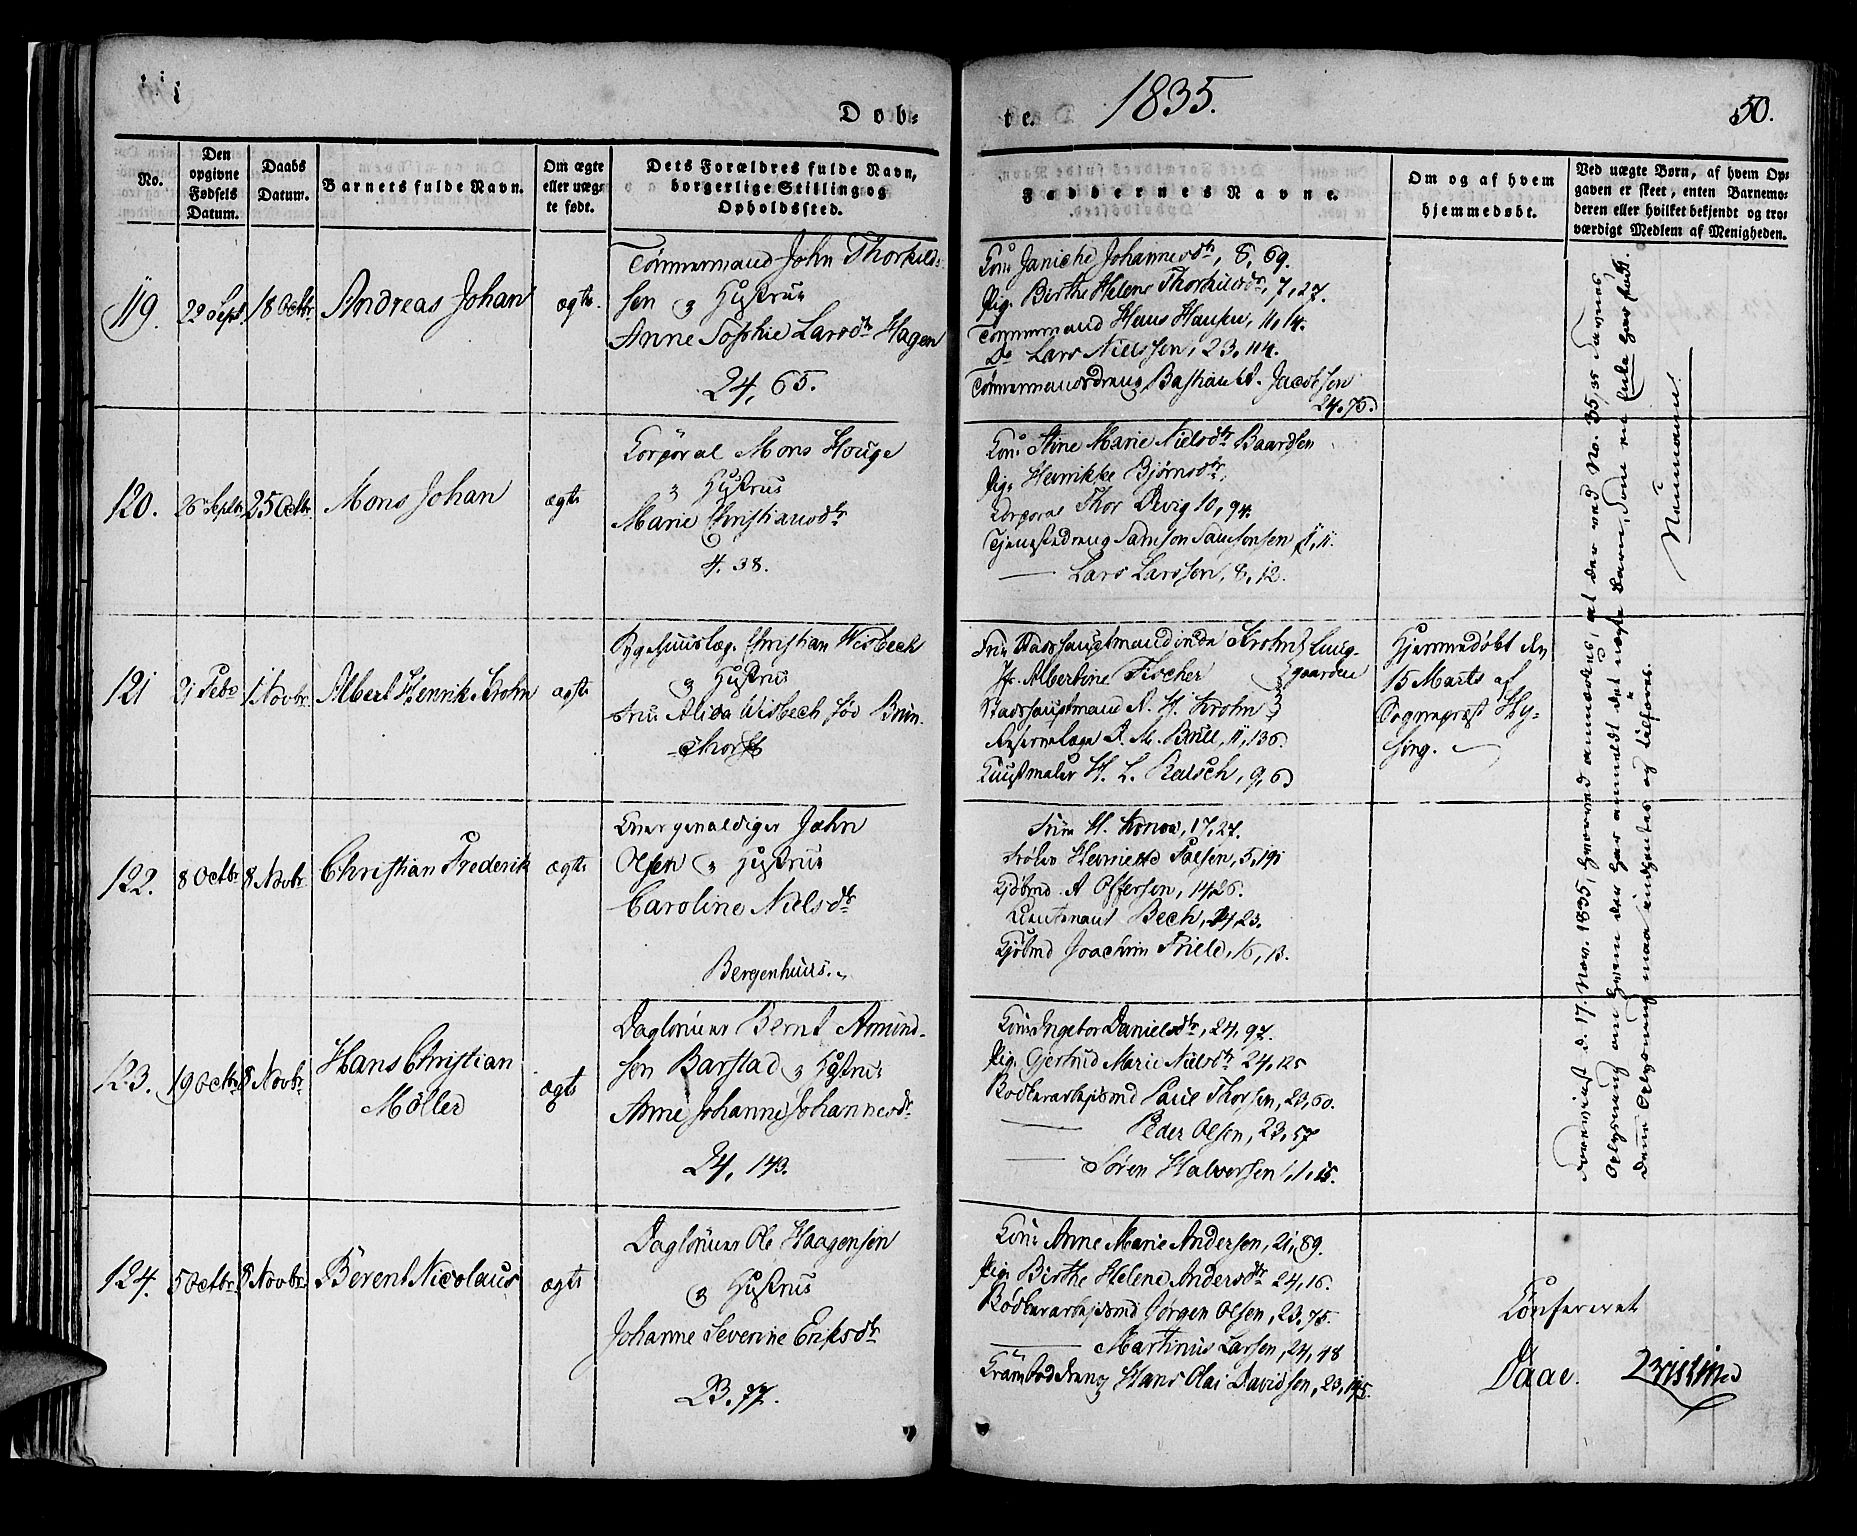 Døb-
te.
1835.
50.
No.
Den opgivne Fødsels Datum.
Daabs Datum.
Barnets fulde Navn.
Om ægte eller uæg-te født.
Dets Forældres fulde Navn, borgerlige Stilling og Opholdssted.
Faddernes Navne.
Om og af hvem hjemmedøbt.
Ved uægte Børn, af hvem Op-
gaven er skeet, enten Barnemo-
deren eller hvilket bekjendt og tro-
værdigt Medlem af Menigheden.
119.
22 Sept.
18 Octbr.
Andreas Johan
ægte
Tömmermand John Thorkilds-
sen og Hustrue
Anne Sophie Larsdtr Hagen
24, 65.
Kone Janiche Johannesdtr, 8, 69.
Pig. Birthe Helene Thorkilsdtr, 7, 27.
Tömmermand Hans Hansen, 11, 14.
Do Lars Nielssen, 23, 114.
Tömmermandsdreng Bastian A. Jacobsen
24, 76.
120.
26 Septbr.
25 Octbr.
Mons Johan
ægte
Corporal Mons Houge
og Hustrue
Marie Christiansdtr
4, 38.
Kone Stine Marie Nielsdtr Baardsen
Pig. Henrikke Bjørnsdtr,
Corporal Thor Devig 10, 94.
Tjenestedreng Samson Samsonsen, 1, 11.
— Lars Larssen, 8, 12.
121
21 Febr.
1 Novbr.
Albert Henrik Krohn
ægte
Sygehuuslæg. Christian Wisbech
og Hustrue
Frue Alida Wisbech fød Brun-
chorst
Frue Stadshauptmandinde Krohn } Lung-
Jfr. Albertine Fischer } gaarden
Stadshauptmand A. H. Krohn }
A. M. Brull, 11, 136.
Kunstmaler H. L. Reusch, 9, 6
Hjemmedøbt den
15 Marts af
Sogneprest Hy-
sing.
122.
8 Octbr.
8 Novbr.
Christian Frederik
ægte
John
Olsen og Hustrue
Caroline Nielsdtr
Bergenhuus.
Frue H. Konow, 17, 27.
Frøken Henriette Falsen, 5, 191
Kjöbmd A Offersen, 14, 26.
Lieutenant Bech, 24, 23.
Kjöbmd Joachim Friele, 16, 13.
123.
19 Octbr
8 Novbr.
Hans Christian
Möller
ægte
Daglönner Bernt Amund-
sen Barstad og Hustrue
Anne Johanne Johannesdtr
24, 143.
Kone Ingebor Danielsdtr, 24, 97.
Pig. Gjertrud Marie Nielsdtr 24, 125
Bödkerarbejdsmd Paul Thorsen, 23, 60.
— Peder Olsen, 23, 57
— Sören Halvorsen, 1, 15.
124.
5 Octbr.
8 Novbr.
Berent Nicolaus
ægte
Daglönner Ole Haagensen
og Hustrue
Johanne Severine Eriksdtr
23, 77.
Kone Anne Marie Andersen, 21, 89.
Pig. Birthe Helene Andersdtr 24, 16.
Bödkerarbejdsmd Jørgen Olsen, 23, 75.
— Martinus Larsen, 24, 48
Hans Olai Davidsen, 23, 145.
d. 17. Nov. 1835, hvorved anmærkes, at der ved No. 35, 95 savnes
Oplysning om hvem der har anmeldt det uægte Barn, som en har født.
Denne Oplysning maa indhentes og tilføres.
Neumann.
Confereret
Daae.